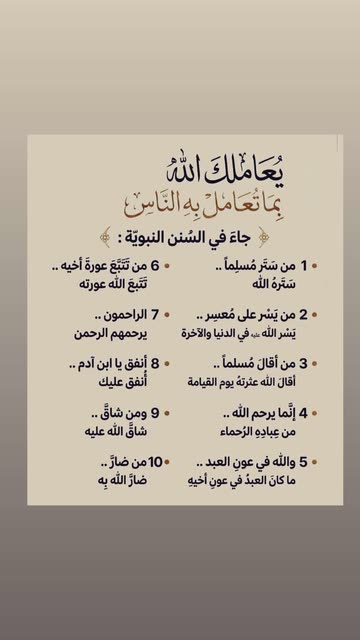 يُعَامِلكَ اللّٰه
بِمَا تُعَامِلْ بِهِ النَّاسِ
﴿ جاءَ في السُنن النبويّة : ﴾
1 من سَتَر مُسلِماً ..
سَتَرهُ الله
2 من يَسْر على مُعسِر ..
يَسْر الله عليه في الدنيا والآخرة
3 من أقالَ مُسلماً ..
أقالَ الله عثرتهُ يوم القيامة
4 إنَّما يرحم الله ..
من عِبادِهِ الرُحماء
5 والله في عونِ العبد ..
ما كانَ العبدُ في عونِ أخيهِ
6 من تَتَبَّعَ عورةَ أخيه ..
تَتَبعَ الله عورته
7 الراحمون ..
يرحمهم الرحمن
8 أنفق يا ابن آدم ..
أُنفق عليك
9 ومن شاقَّ ..
شاقَّ الله عليه
10 من ضارَّ ..
ضارَّ الله بِه